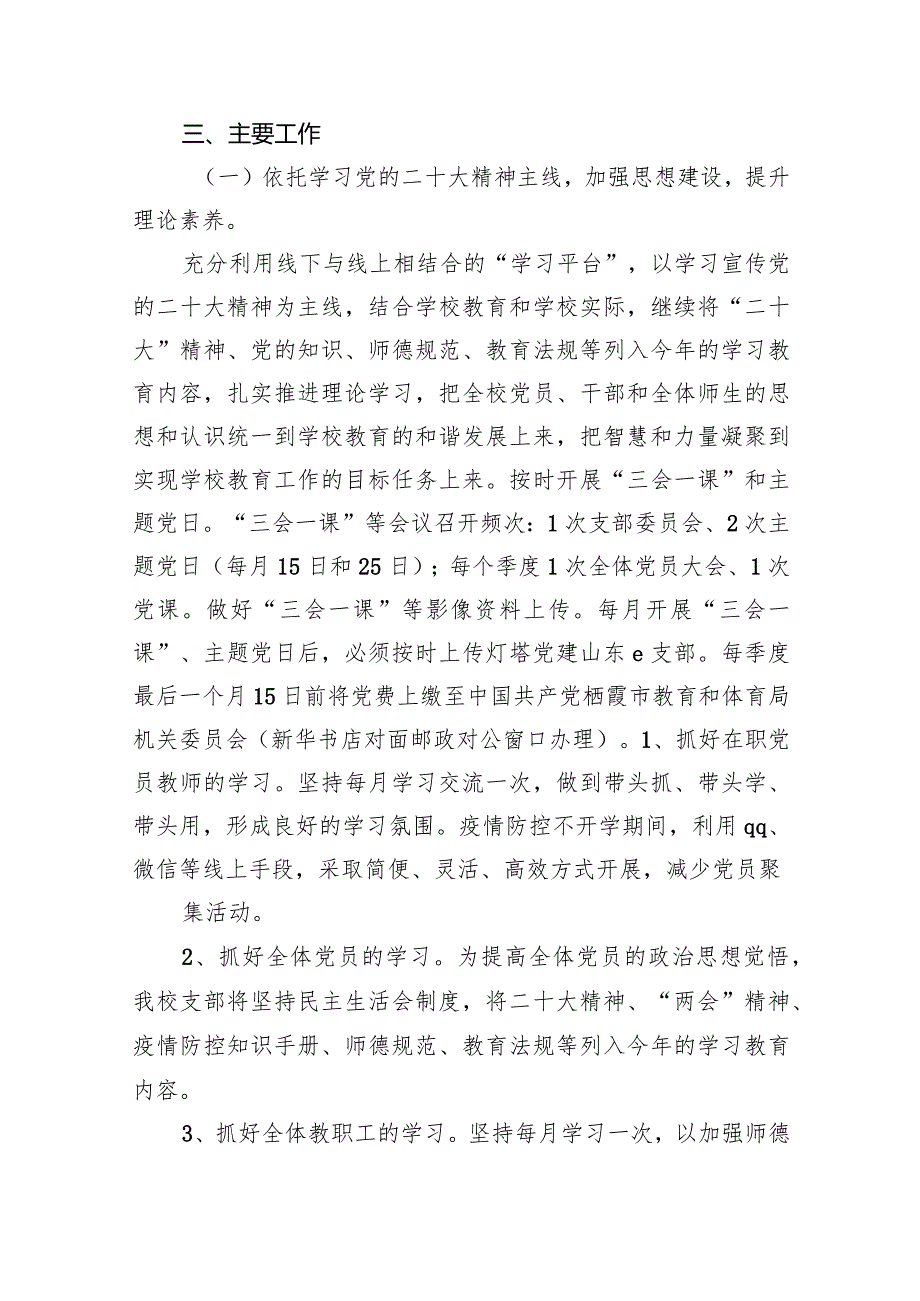 三、主要工作
（一）依托学习党的二十大精神主线，加强思想建设，提升
理论素养。
充分利用线下与线上相结合的“学习平台”，以学习宣传党
的二十大精神为主线，结合学校教育和学校实际，继续将“二十
大”精神、党的知识、师德规范、教育法规等列入今年的学习教
育内容，扎实推进理论学习，把全校党员、干部和全体师生的思
想和认识统一到学校教育的和谐发展上来，把智慧和力量凝聚到
实现学校教育工作的目标任务上来。按时开展“三会一课”和主
题党日。“三会一课”等会议召开频次：1次支部委员会、2次主
题党日（每月15日和25日）；每个季度1次全体党员大会、1次
党课。做好“三会一课”等影像资料上传。每月开展“三会一
课”、主题党日后，必须按时上传灯塔党建山东e支部。每季度
最后一个月15日前将党费上缴至中国共产党栖霞市教育和体育局
机关委员会（新华书店对面邮政对公窗口办理）。1、抓好在职党
员教师的学习。坚持每月学习交流一次，做到带头抓、带头学、
带头用，形成良好的学习氛围。疫情防控不开学期间，利用qq、
微信等线上手段，采取简便、灵活、高效方式开展，减少党员聚
集活动。
2、抓好全体党员的学习。为提高全体党员的政治思想觉悟，
我校支部将坚持民主生活会制度，将二十大精神、“两会”精神、
疫情防控知识手册、师德规范、教育法规等列入今年的学习教育
内容。
3、抓好全体教职工的学习。坚持每月学习一次，以加强师德